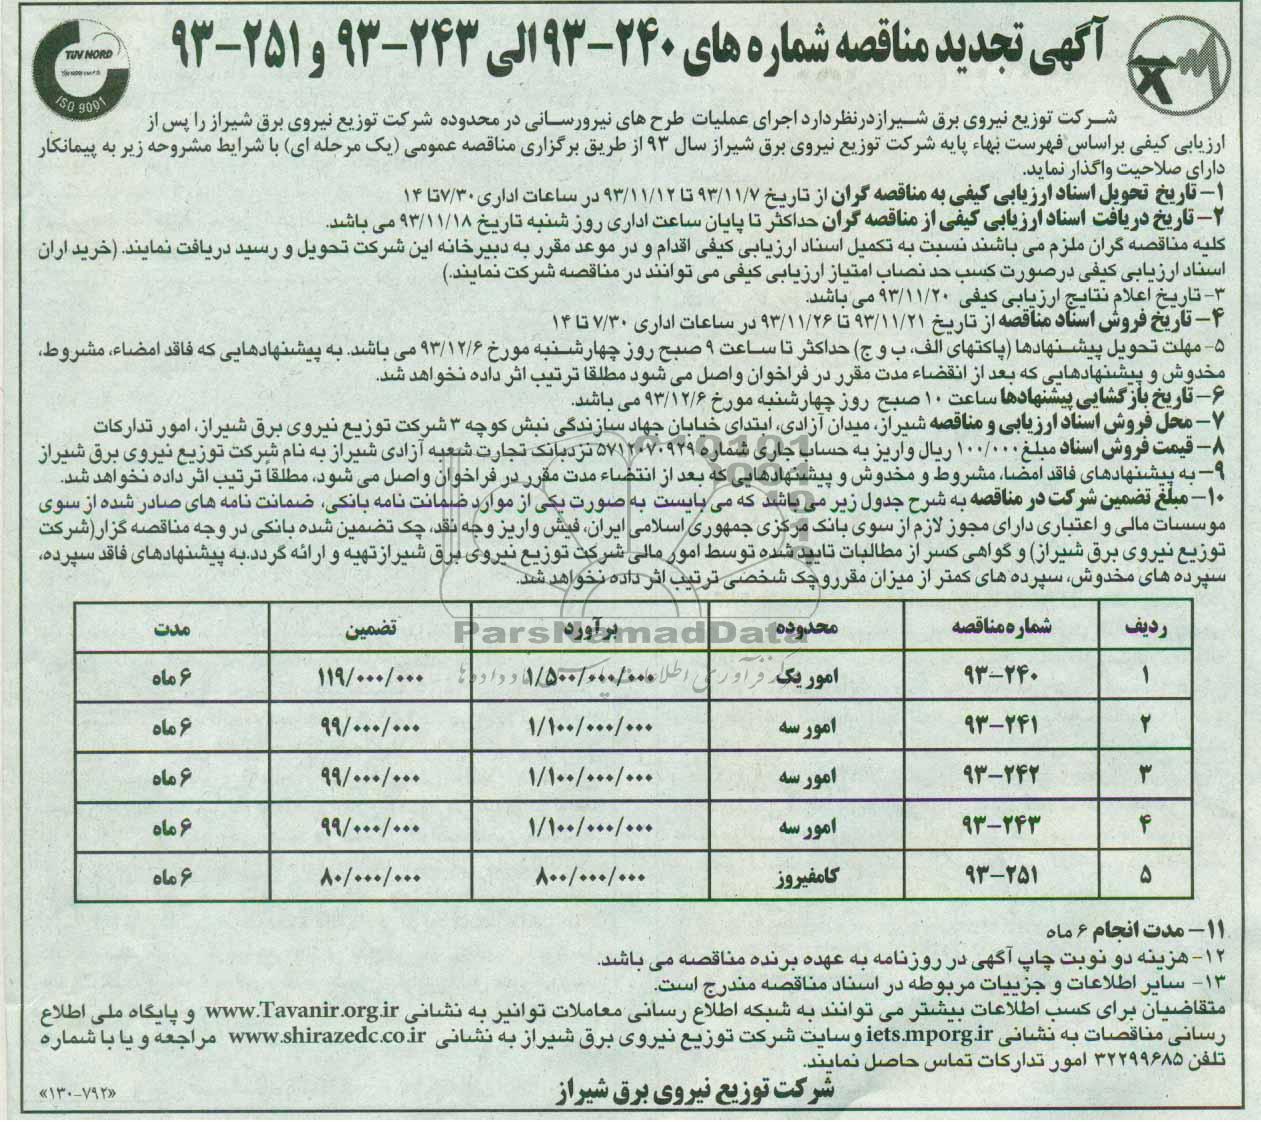 آگهی تجدید مناقصه شماره های ۲۴۰-۹۳ الی ۲۴۳-۹۳ و ۲۵۱-۹۳
TÜV NORD
ISO 9001
شرکت توزیع نیروی برق شیراز درنظر دارد اجرای عملیات طرح های نیرورسانی در محدوده شرکت توزیع نیروی برق شیراز را پس از
ارزیابی کیفی براساس فهرست بهاء پایه شرکت توزیع نیروی برق شیراز سال ۹۳ از طریق برگزاری مناقصه عمومی (یک مرحله ای) با شرایط مشروحه زیر به پیمانکار
دارای صلاحیت واگذار نماید.
۱- تاریخ تحویل اسناد ارزیابی کیفی به مناقصه گران از تاریخ ۹۳/۱۱/۷ تا ۹۳/۱۱/۱۲ در ساعات اداری ۷/۳۰ تا ۱۴
۲- تاریخ دریافت اسناد ارزیابی کیفی از مناقصه گران حداکثر تا پایان ساعت اداری روز شنبه تاریخ ۹۳/۱۱/۱۸ می باشد.
کلیه مناقصه گران ملزم می باشند نسبت به تکمیل اسناد ارزیابی کیفی اقدام و در موعد مقرر به دبیرخانه این شرکت تحویل و رسید دریافت نمایند. (خرید اران
اسناد ارزیابی کیفی درصورت کسب حد نصاب امتیاز ارزیابی کیفی می توانند در مناقصه شرکت نمایند.)
۳- تاریخ اعلام نتایج ارزیابی کیفی ۹۳/۱۱/۲۰ می باشد.
۴- تاریخ فروش اسناد مناقصه از تاریخ ۹۳/۱۱/۲۱ تا ۹۳/۱۱/۲۶ در ساعات اداری ۷/۳۰ تا ۱۴
۵- مهلت تحویل پیشنهادها (پاکتهای الف، ب و ج) حداکثر تا ساعت ۹ صبح روز چهارشنبه مورخ ۹۳/۱۲/۶ می باشد. به پیشنهادهایی که فاقد امضاء، مشروط،
مخدوش و پیشنهادهایی که بعد از انقضاء مدت مقرر در فراخوان واصل می شود مطلقا ترتیب اثر داده نخواهد شد.
۶- تاریخ بازگشایی پیشنهادها ساعت ۱۰ صبح روز چهارشنبه مورخ ۹۳/۱۲/۶ می باشد.
۷- محل فروش اسناد ارزیابی و مناقصه شیراز، میدان آزادی، ابتدای خیابان جهاد سازندگی نبش کوچه ۳ شرکت توزیع نیروی برق شیراز، امور تدارکات
۸- قیمت فروش اسناد مبلغ ۱۰۰/۰۰۰ ریال واریز به حساب جاری شماره ۵۷۱۲۰۷۰۹۲۹ نزدبانک تجارت شعبه آزادی شیراز به نام شرکت توزیع نیروی برق شیراز
۹- به پیشنهادهای فاقد امضا، مشروط و مخدوش و پیشنهادهایی که بعد از انتضاء مدت مقرر در فراخوان واصل می شود، مطلقا ترتیب اثر داده نخواهد شد.
۱۰- مبلغ تضمین شرکت در مناقصه به شرح جدول زیر می باشد که می بایست به صورت یکی از موارد ضمانت نامه بانکی، ضمانت نامه های صادر شده از سوی
موسسات مالی و اعتباری دارای مجوز لازم از سوی بانک مرکزی جمهوری اسلامی ایران، فیش واریز وجه نقد، چک تضمین شده بانکی در وجه مناقصه گزار(شرکت
توزیع نیروی برق شیراز) و گواهی کسر از مطالبات تایید شده توسط امور مالی شرکت توزیع نیروی برق شیراز تهیه و ارائه گردد.به پیشنهادهای فاقد سپرده،
سپرده های مخدوش، سپرده های کمتر از میزان مقرروچک شخصی ترتیب اثر داده نخواهد شد.
ParsNamadData
ردیف شماره مناقصه محدوده برآورد تضمین مدت
۱ ۹۳-۲۴۰ امور یک ۱/۵۰۰/۰۰۰/۰۰۰ ۱۱۹/۰۰۰/۰۰۰ ۶ ماه
۲ ۹۳-۲۴۱ امور سه ۱/۱۰۰/۰۰۰/۰۰۰ ۹۹/۰۰۰/۰۰۰ ۶ ماه
۳ ۹۳-۲۴۲ امور سه ۱/۱۰۰/۰۰۰/۰۰۰ ۹۹/۰۰۰/۰۰۰ ۶ ماه
۴ ۹۳-۲۴۳ امور سه ۱/۱۰۰/۰۰۰/۰۰۰ ۹۹/۰۰۰/۰۰۰ ۶ ماه
۵ ۹۳-۲۵۱ کامفیروز ۸۰۰/۰۰۰/۰۰۰ ۸۰/۰۰۰/۰۰۰ ۶ ماه
۱۱- مدت انجام ۶ ماه
۱۲- هزینه دو نوبت چاپ آگهی در روزنامه به عهده برنده مناقصه می باشد.
۱۳- سایر اطلاعات و جزییات مربوطه در اسناد مناقصه مندرج است.
متقاضیان برای کسب اطلاعات بیشتر می توانند به شبکه اطلاع رسانی معاملات توانیر به نشانی www.Tavanir.org.ir و پایگاه ملی اطلاع
رسانی مناقصات به نشانی iets.mporg.ir وسایت شرکت توزیع نیروی برق شیراز به نشانی www.shirazedc.co.ir مراجعه و یا با شماره
تلفن ۳۲۲۹۹۶۸۵ امور تدارکات تماس حاصل نمایند.
شرکت توزیع نیروی برق شیراز
«۱۳۰-۷۹۲»